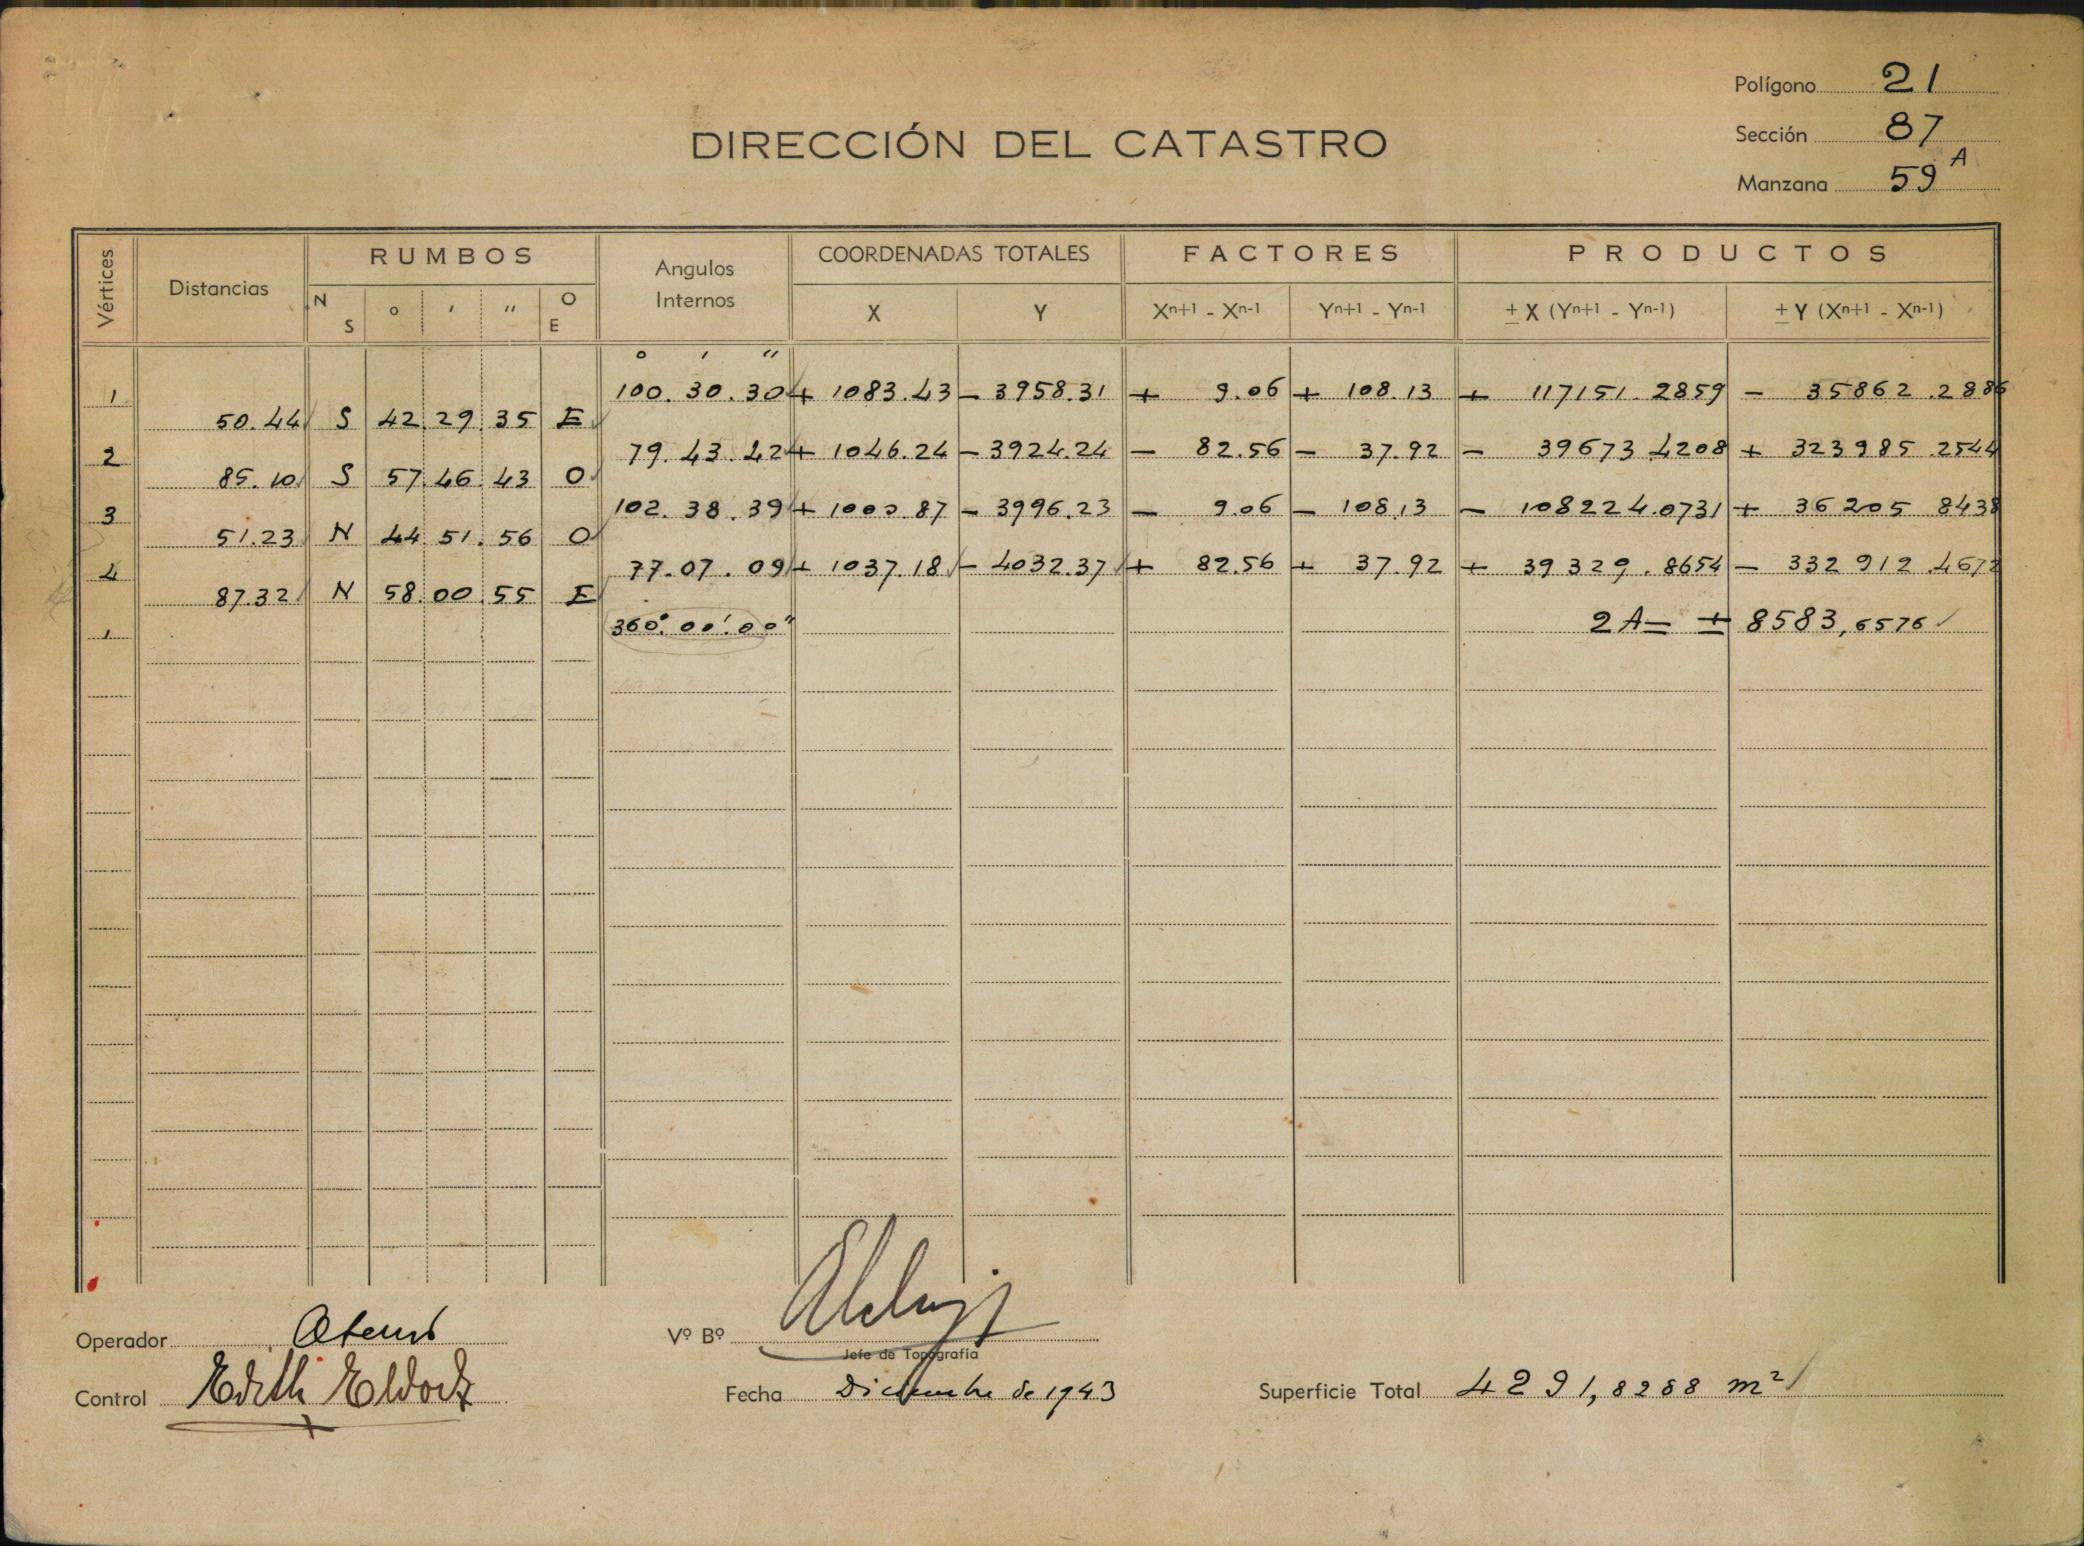 Polígono 21
DIRECCIÓN DEL CATASTRO
Sección 87
Manzana 59 A
Vértices Distancias RUMBOS Angulos Internos COORDENADAS TOTALES FACTORES PRODUCTOS
N S ° ' '' O E X Y Xn+1 - Xn-1 Yn+1 - Yn-1 ± X (Yn+1 - Yn-1) ± Y (Xn+1 - Xn-1)
° ' ''
1 100.30.30 + 1083.43 - 3958.31 + 9.06 + 108.13 + 117151.2859 - 35862.2886
50.44 S 42 29 35 E
2 79.43.42 + 1046.24 - 3924.24 - 82.56 - 37.92 - 39673.4208 + 323985.2544
85.10 S 57 46 43 O
3 102.38.39 + 1000.87 - 3996.23 - 9.06 - 108.13 - 108224.0731 + 36205 8438
51.23 N 44 51 56 O
4 77.07.09 + 1037.18 - 4032.37 + 82.56 + 37.92 + 39329.8656 - 332912.4672
87.32 N 58 00 55 E
1 360°.00'.00'' 2A = + 8583,6576
Operador
Vº Bº
Jefe de Topografía
Control Edith
Fecha Diciembre de 1943
Superficie Total 4291,8288 m²